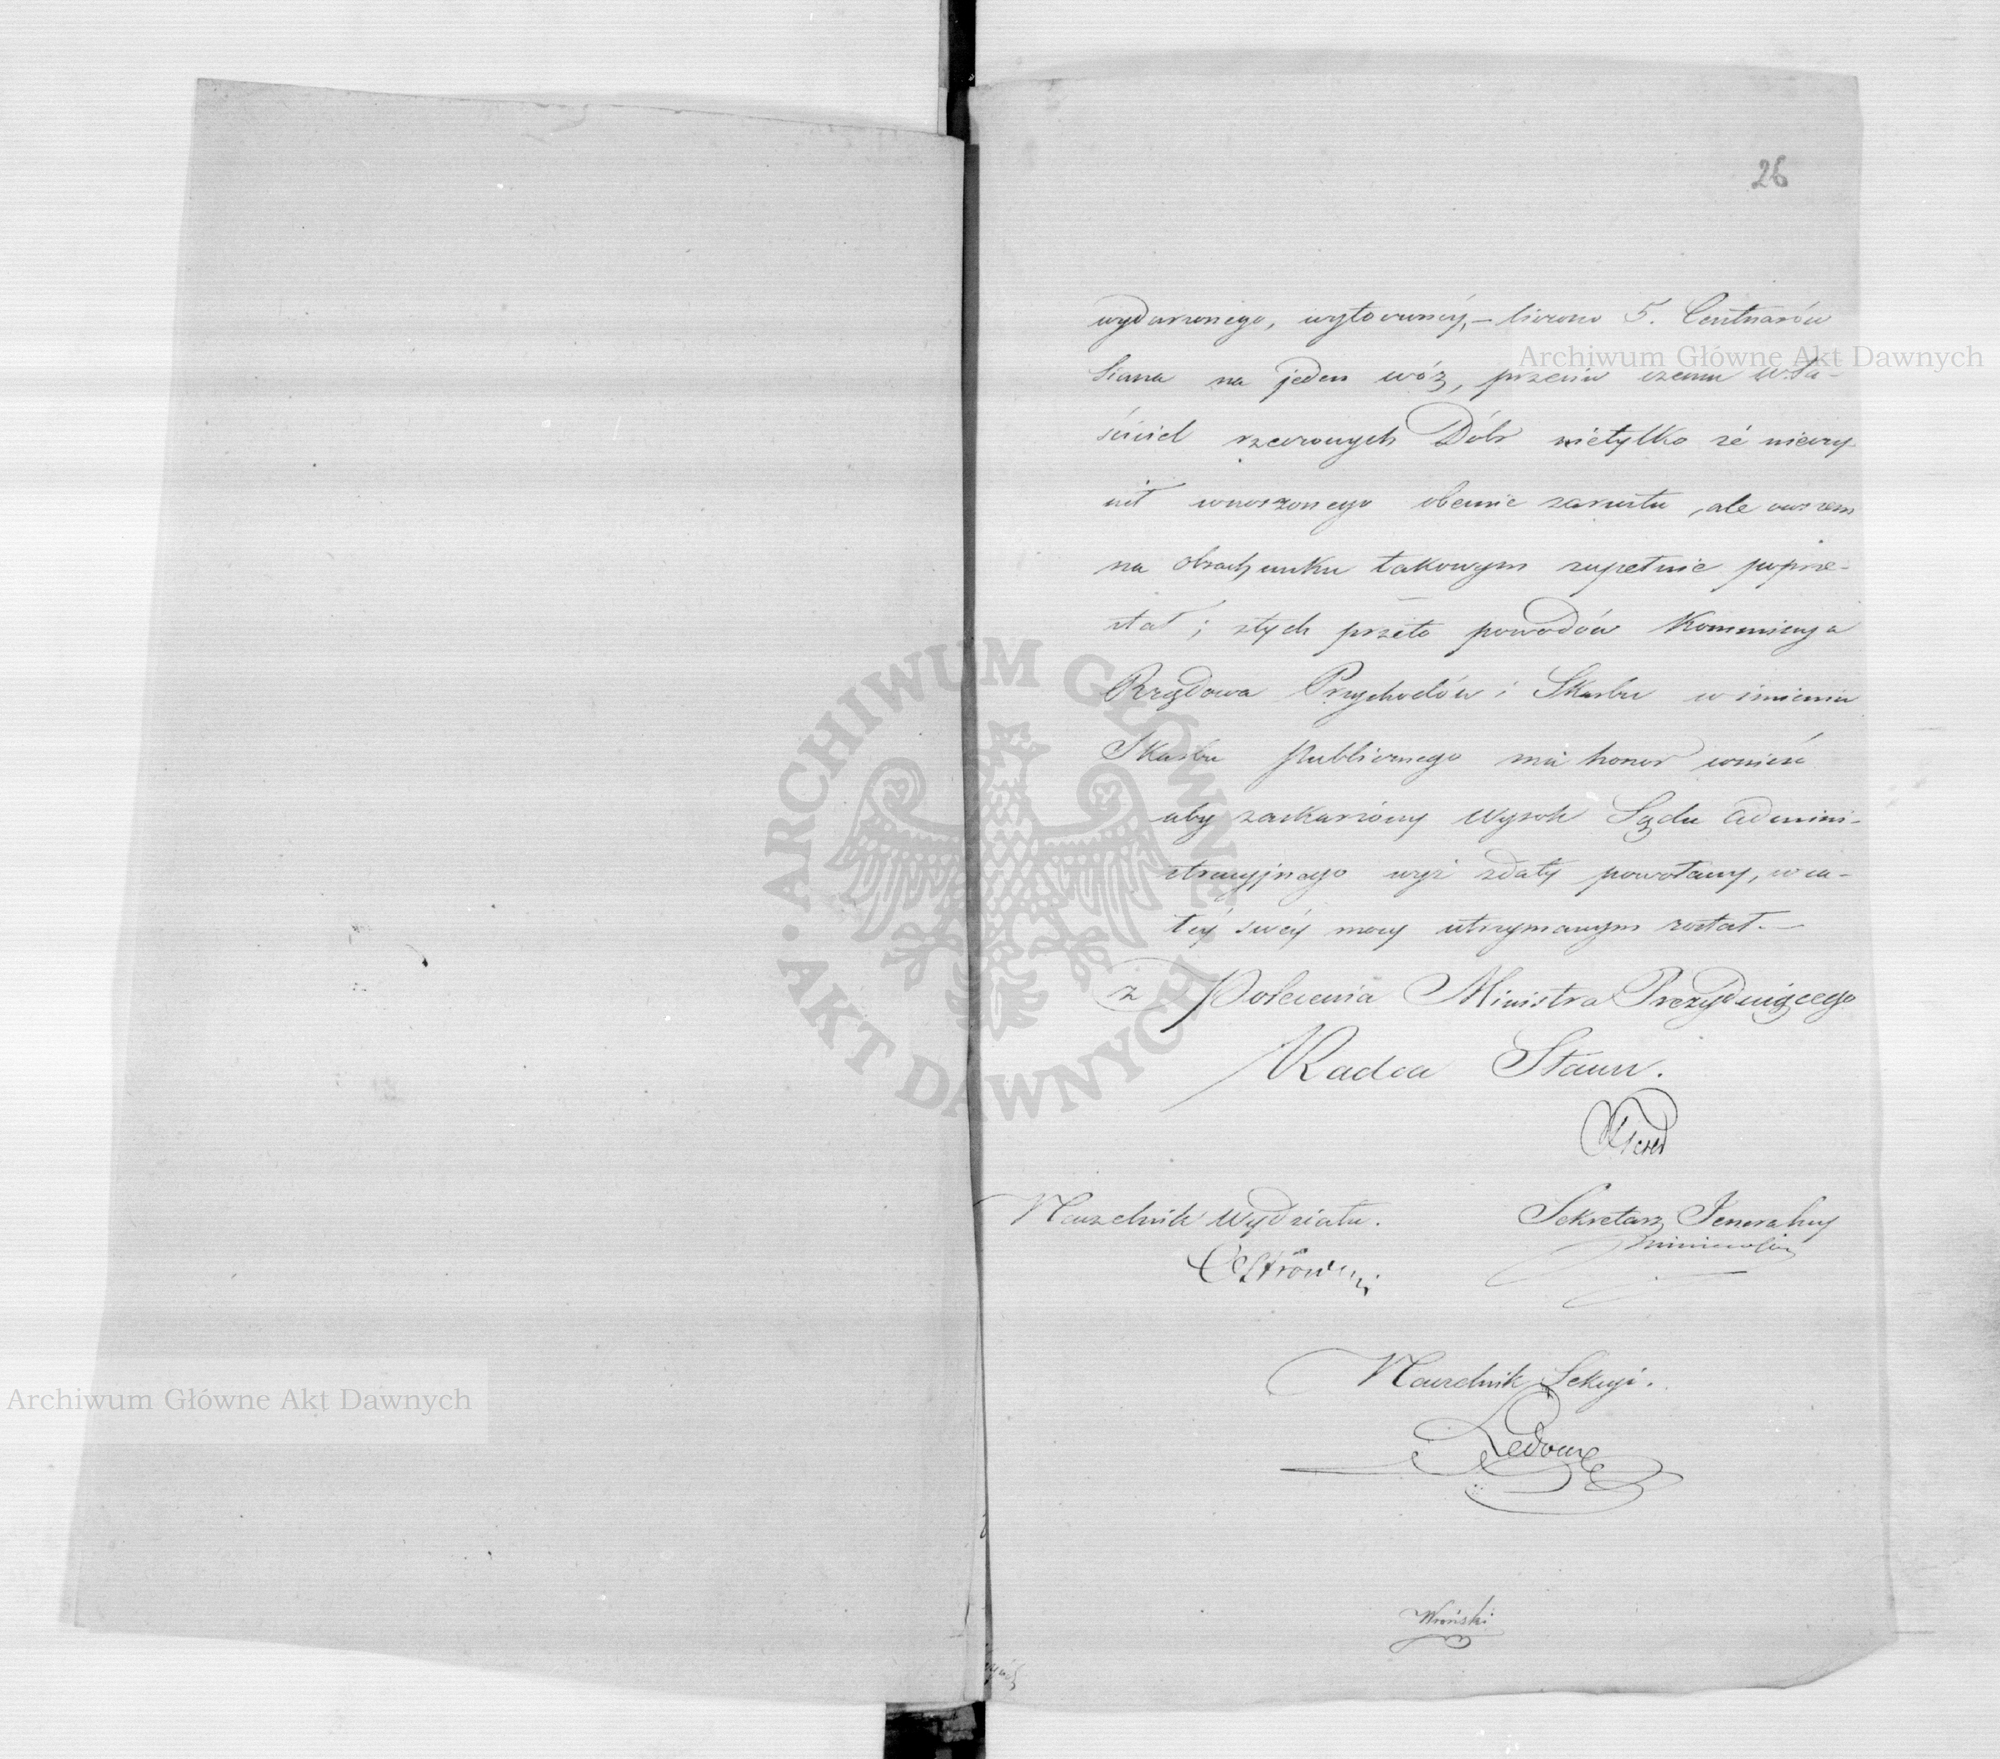 26
wydarzonego, wytoczonéy, – liczono 5. Centnarów
Siana na jeden wóz, przeciw czemu wła-
ściciel rzeczonych Dóbr nietylko że nieczy
nił wnoszonego obecnie zarzutu, ale owszem
na obrachunku takowym zupełnie poprze-
stał; z tych przeto powodów Kommissya
Rządowa Przychodów i Skarbu w imieniu
Skarbu publicznego ma honor wnieść
aby zaskarżony wyrok Sądu admini-
stracyjnego wyż z daty powołany, w ca-
łéy swéy mocy utrzymanym został. –
z Polecenia Ministra Prezyduiącego
Radca Stanu.
Naczelnik Wydziału.
Sekretarz Jeneralny
Ostrowski
Naczelnik Sekcyi.
Wroński
Archiwum Główne Akt Dawnych
Archiwum Główne Akt Dawnych
ARCHIWUM GŁÓWNE AKT DAWNYCH